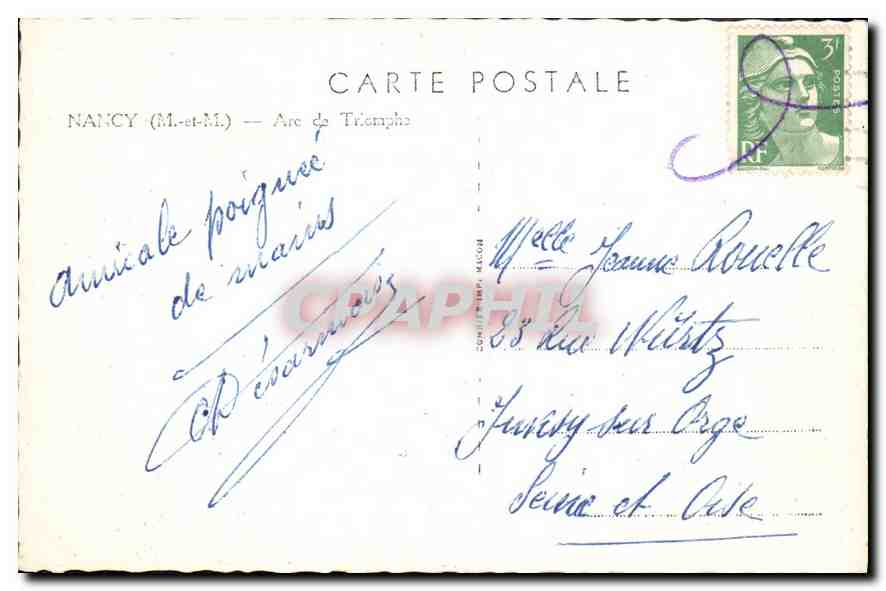 CARTE POSTALE
NANCY (M.-et-M.) — Arc de Triomphe
3F
POSTES
RF
amicale poignée
de mains
Désarmaix
Melle Jeanne Rouelle
23 Rue Würtz
Juvisy sur Orge
Seine et Oise
COMBIER IMP. MACON
CPAPHIL